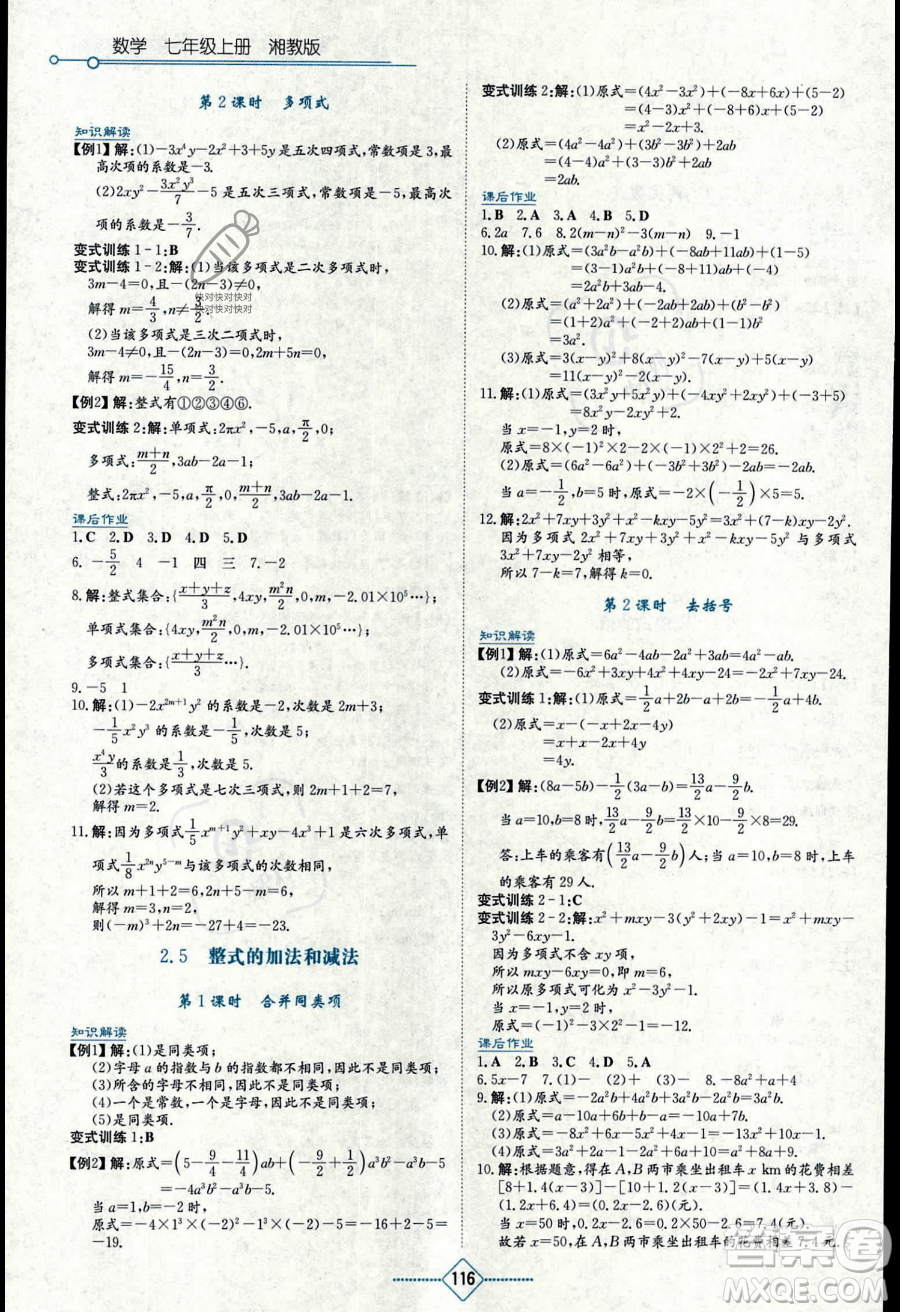 数学 七年级上册 湘教版
第2课时 多项式
知识解读
【例1】解:(1)-3x⁴y-2x²+3+5y是五次四项式,常数项是3,最
高次项的系数是-3.
(2)2xy²-3x²y³/7-5是五次三项式,常数项是-5,最高次
项的系数是-3/7.
变式训练1-1:B
变式训练1-2:解:(1)当该多项式是二次多项式时,
3m-4=0,且-(2n-3)≠0,
解得m=4/3,n≠3/2.
快对快对快对
快对快对快对
(2)当该多项式是三次二项式时,
3m-4≠0,2n-3=0,
解得m=-15/4,n=3/2.
【例2】解:整式有①②③④⑥.
变式训练2:解:单项式:2πx²,-5,a,π/2,0;
多项式:(m+n)/2,3ab-2a-1;
整式:2πx²,-5,a,π/2,0,(m+n)/2,3ab-2a-1.
课后作业
1.C 2.D 3.D 4.D 5.D
6.-5/2 4 -1 四 三 7.-2
8.解:整式集合:{(x+y+z)/3,4xy,m²n/2,-2.01×10⁵…};
单项式集合:{4xy,m²n/2,-2.01×10⁵…};
多项式集合:{(x+y+z)/3…}.
9.-5 1
10.解:(1)-2x²ᵐ⁺¹y²的系数是-2,次数是2m+3;
-1/5x³y²的系数是-1/5,次数是5;
x⁴y/3的系数是1/3,次数是5;
(2)若这个多项式是七次三项式,则2m+1+2=7,
解得m=2.
11.解:因为多项式1/5x^(m+1)y²+xy-4x³+1是六次多项式,单
项式1/8x^(2n)y^(5-m)与该多项式的次数相同,
所以m+1+2=6,2n+5-m=6,
解得m=3,n=2,
则(-m)³+2n=-27+4=-23.
2.5 整式的加法和减法
第1课时 合并同类项
知识解读
【例1】解:(1)是同类项;
(2)字母a的指数与b的指数都不同,不是同类项;
(3)所含的字母不同,不是同类项;
(4)一个是常数,一个是单项式,不是同类项;
(5)是同类项.
变式训练1:B
【例2】解:原式=(5-9/4-11/4)ab+(-9/2+1/2)a³b²-a³b²-5
=-4a³b²-a³b-5.
当a=1,b=-2时,
原式=-4×1³×(-2)²-1³×(-2)-5=-16+2-5=
-19.
变式训练2:解:(1)原式=(4x²-3x²)+(-8x+6x)+(5-2)
=(4-3)x²+(-8+6)x+(5-2)
=x²-2x+3.
(2)原式=(4a²-4a²)+(-2ab+4ab)
=(4-4)a²+(-2+4)ab
=2ab.
课后作业
1.B 2.A 3.A 4.B 5.D
6.2a 7.6 8.2(m-n)²-3(m-n) 9.-1
10.解:(1)原式=(3a²b-a²b)+(-8ab²+ab²)+(1-5)
=(3-1)a²b+(-8+1)ab²+(1-5)
=2a²b-7ab²-4.
(2)原式=(a²+2a²)+(-2ab+2ab)+(b²-b²)
=(1+2)a²
=3a².
(3)原式=3(x-y)²+8(x-y)²-7(x-y)+6(x-y)
=11(x-y)²-(x-y).
11.解:(1)原式=(3x²y+5x²y)+(-4xy²+2xy²)+(-3+5)
=8x²y-2xy²+2.
当x=-1,y=2时,
原式=8×(-1)²×2-2×(-1)×2²+2=26.
(2)原式=(4a²-3a²-a²)+(2ab-4ab)=-2ab.
当a=-1/2,b=5时,原式=-2×(-1/2)×5=5.
12.解:2x²+7xy+3y²+x²-kxy+5y²=3x²+(7-k)xy+8y².
因为多项式2x²+7xy+3y²+x²-kxy+5y²与多项式
3x²+8y²相等,
所以7-k=0,解得k=7.
第2课时 去括号
知识解读
【例1】解:(1)原式=6a²-4ab-8a²-2ab=-2a²-6ab.
(2)原式=-6x²+3xy+4x²+4xy-24=-2x²+7xy-24.
变式训练1:解:(1)原式=1/2a+2b-a+2b=-1/2a+4b.
(2)原式=x-(-4y+x-2x)
=x-(-x-4y)
=x+x+4y
【例2】解:(8a-5b)-1/2(3a-b)=13/2a-9/2b.
当a=10,b=8时,13/2a-9/2b=13/2×10-9/2×8=29.
答:上车的乘客有(13/2a-9/2b)人;当a=10,b=8时,上车的
乘客有29人.
变式训练2-1:C
变式训练2-2:解:x²+mxy-3y²-6xy-3=x²+mxy-
3y²-6xy-3.
因为原多项式中不含xy项,
所以mxy-6xy=0,即m=6,
所以原多项式可化为x²-3y²-3,
原式=(-1)²-3×2²-3=-14.
课后作业
1.A 2.B 3.D 4.D 5.A
6.5x-7 7.(1)- (2)+ 8.-5
(4)原式=6x²-3y²-6y²+4x²=10x²-9y².
10.解:根据题意,得在A,B两市乘坐出租车x km的花费相差
[8+1.4(x-3)]-[10+1.2(x-3)]=(1.4x+3.8)-
(1.2x+6.4)=(0.2x-2.6)元.
故若x=50时,在A,B两市乘坐出租车的花费相差7.4元.
116
答案卷
MXQE.COM